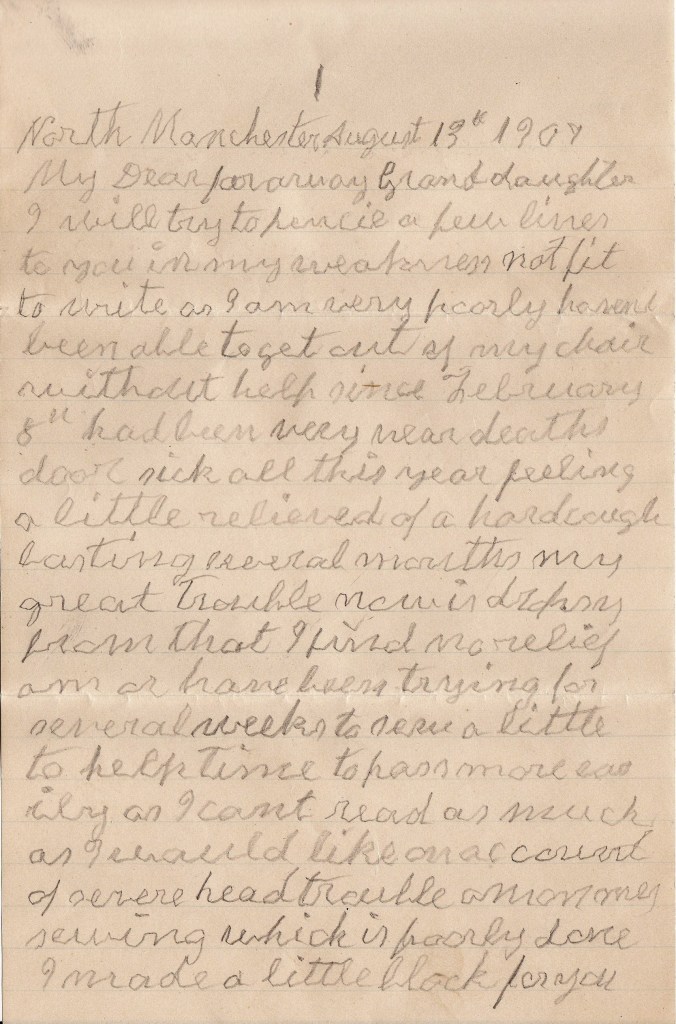 1
North Manchester August 13th 1907
My Dear far away Grand daughter
I will try to pencie a few lines
to you in my weakness not fit
to write as I am very poorly havent
been able to get out of my chair
without help since February
8th had been very near deaths
door sick all this year feeling
a little relieved of a hard cough
lasting several months my
great trouble now is dropsy
from that I find no relief
am or have been trying for
several weeks to sew a little
to help time to pass more eas
ily as I cant read as much
as I would like on account
of severe head trouble
sewing which is poorly done
I made a little block for you